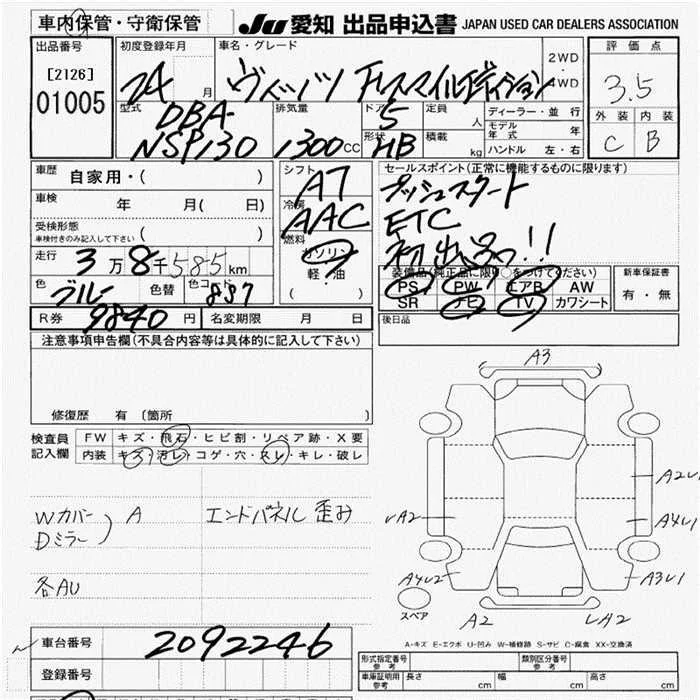 車内保管・守衛保管
JU 愛知 出品申込書 JAPAN USED CAR DEALERS ASSOCIATION
出品番号
[2126]
01005
初度登録年月
24 月
車名・グレード
2WD
・
4WD
評価点
3.5
型式
DBA-
NSP130
排気量
1300 CC
ドア
5
形状
HB
定員
人
積載
kg
ディーラー・並行
モデル年式 年
ハンドル 左・右
外装 内装
C B
車歴
自家用・( )
車検
年 月( 日)
受検形態
車検付きのみ記入して下さい ( )
走行
3万8千585km
色
ブルー
色替
色コード
8B7
シフト
AT
冷房
AAC
燃料
ガソリン
軽・油
( )
セールスポイント(正常に機能するものに限ります)
プッシュスタート
ETC
初出品!!
装備品(純正品に限り○をつけてください)
PS PW エアB AW
SR ナビ TV カワシート
新車保証書
有・無
R券
9840 円
名変期限 月 日
後日品
注意事項申告欄(不具合内容等は具体的に記入して下さい)
修復歴 有 〔箇所 〕
検査員
記入欄
FW キズ・飛石・ヒビ割・リペア跡・X要
内装 キズ・汚レ・コゲ・穴・スレ・キレ・破レ
Wカバー
Dミラー
) A
エンドパネル 歪み
各AU
A3
A2
A4U1
A3U1
A2
A4U2
A2
スペア
A-キズ E-エクボ U-凹み W-補修跡 S-サビ C-腐食 XX-交換済
車台番号
2092246
登録番号
形式指定番号
参考
類別区分番号
参考
車庫証明用
参考
長さ cm 幅 cm 高さ cm